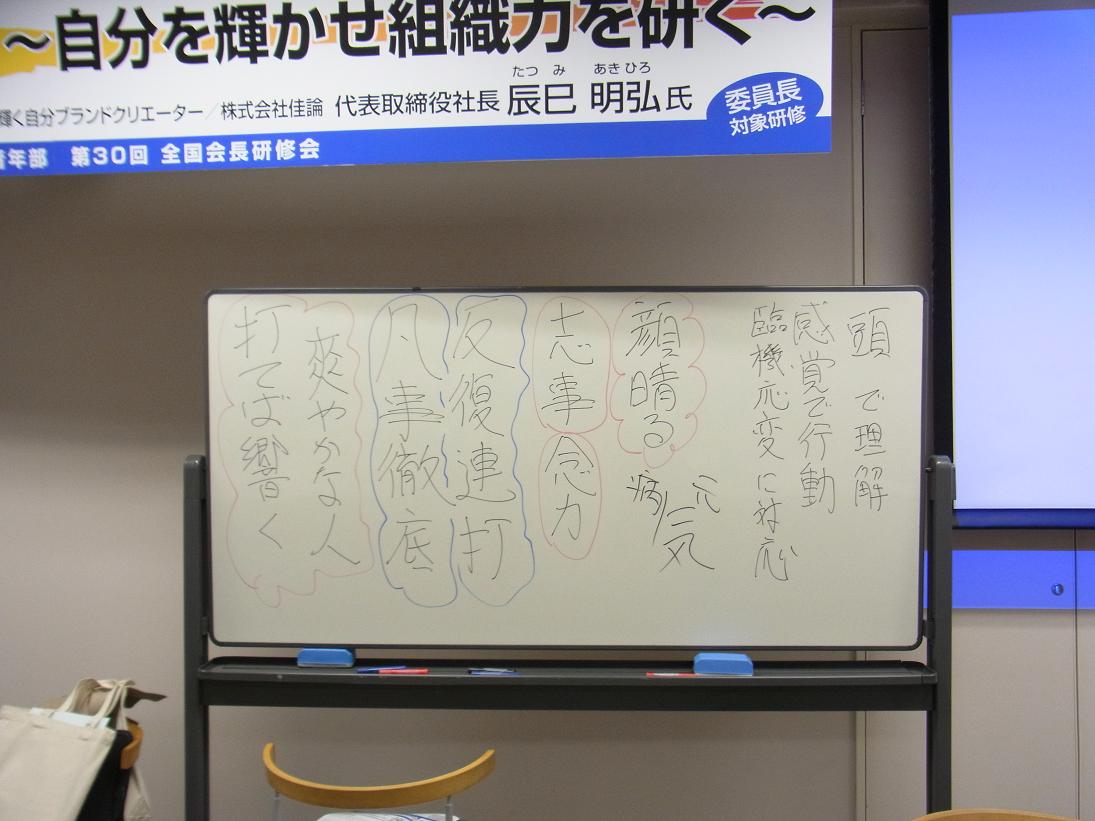 ～自分を輝かせ組織力を研く～
輝く自分ブランドクリエーター／株式会社佳論 代表取締役社長 辰巳 明弘氏
たつ み あき ひろ
委員長
対象研修
青年部 第30回 全国会長研修会
頭で理解
感覚で行動
臨機応変に対応
顔晴る
元
病
気
志事
念力
反復連打
凡事徹底
爽やかな人
打てば響く